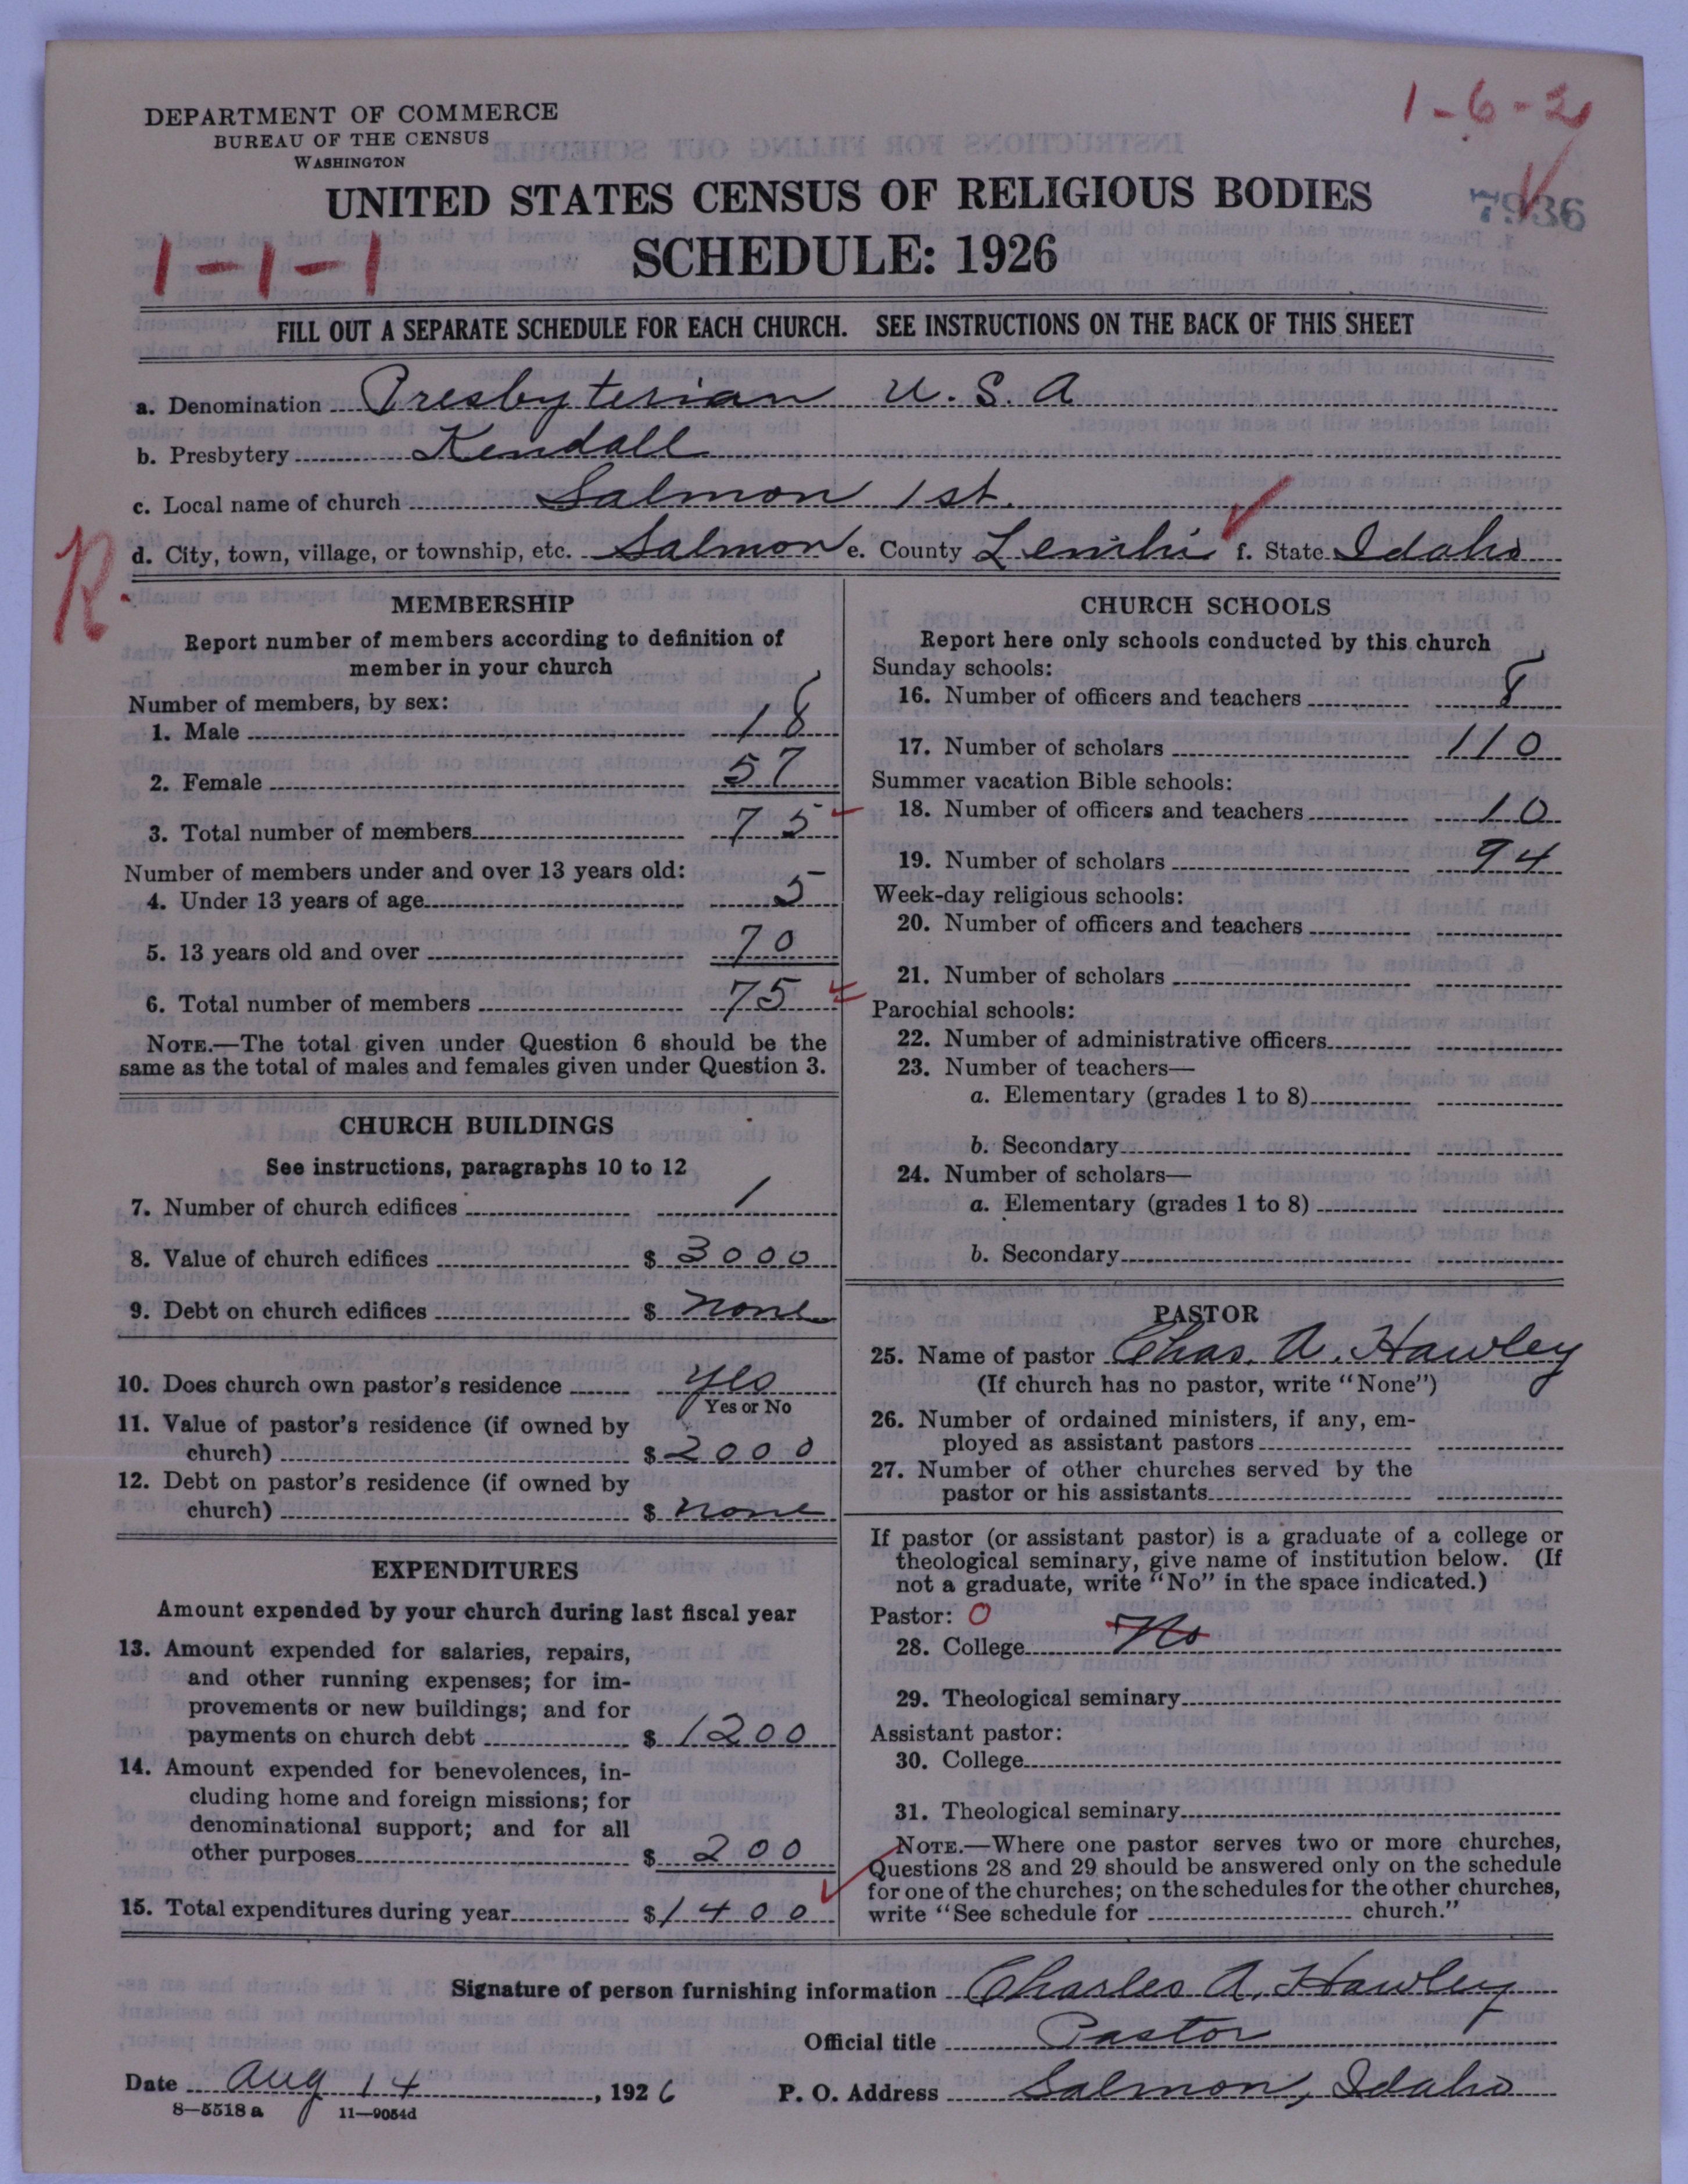 DEPARTMENT OF COMMERCE
BUREAU OF THE CENSUS
WASHINGTON
1-6-2
UNITED STATES CENSUS OF RELIGIOUS BODIES
7936
SCHEDULE: 1926
1-1-1
FILL OUT A SEPARATE SCHEDULE FOR EACH CHURCH. SEE INSTRUCTIONS ON THE BACK OF THIS SHEET
a. Denomination Presbyterian U.S.A
b. Presbytery Kendall
c. Local name of church Salmon 1st.
d. City, town, village, or township, etc. Salmon e. County Lemhi f. State Idaho
R
MEMBERSHIP
Report number of members according to definition of
member in your church
Number of members, by sex:
1. Male 18
2. Female 57
3. Total number of members 75
Number of members under and over 13 years old:
4. Under 13 years of age 5
5. 13 years old and over 70
6. Total number of members 75
NOTE.—The total given under Question 6 should be the
same as the total of males and females given under Question 3.
CHURCH BUILDINGS
See instructions, paragraphs 10 to 12
7. Number of church edifices 1
8. Value of church edifices $ 3000
9. Debt on church edifices $ none
10. Does church own pastor's residence yes
Yes or No
11. Value of pastor's residence (if owned by
church) $ 2000
12. Debt on pastor's residence (if owned by
church) $ none
EXPENDITURES
Amount expended by your church during last fiscal year
13. Amount expended for salaries, repairs,
and other running expenses; for im-
provements or new buildings; and for
payments on church debt $ 1200
14. Amount expended for benevolences, in-
cluding home and foreign missions; for
denominational support; and for all
other purposes $ 200
15. Total expenditures during year $ 1400
CHURCH SCHOOLS
Report here only schools conducted by this church
Sunday schools:
16. Number of officers and teachers 8
17. Number of scholars 110
Summer vacation Bible schools:
18. Number of officers and teachers 10
19. Number of scholars 94
Week-day religious schools:
20. Number of officers and teachers
21. Number of scholars
Parochial schools:
22. Number of administrative officers
23. Number of teachers—
a. Elementary (grades 1 to 8)
b. Secondary
24. Number of scholars—
a. Elementary (grades 1 to 8)
b. Secondary
PASTOR
25. Name of pastor Chas. A. Hawley
(If church has no pastor, write "None")
26. Number of ordained ministers, if any, em-
ployed as assistant pastors
27. Number of other churches served by the
pastor or his assistants
If pastor (or assistant pastor) is a graduate of a college or
theological seminary, give name of institution below. (If
not a graduate, write "No" in the space indicated.)
Pastor: O
28. College No
29. Theological seminary
Assistant pastor:
30. College
31. Theological seminary
NOTE.—Where one pastor serves two or more churches,
Questions 28 and 29 should be answered only on the schedule
for one of the churches; on the schedules for the other churches,
write "See schedule for church."
Signature of person furnishing information Charles A. Hawley
Official title Pastor
Date Aug 14, 1926 P. O. Address Salmon, Idaho
8—5518 a 11—9054d